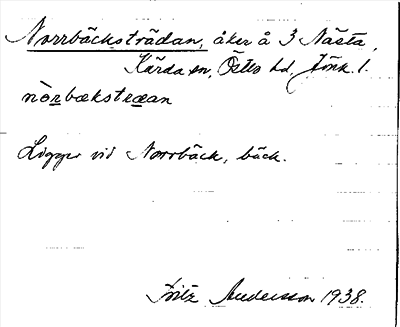 Norrbäcksträdan, åker å 3 Nästa,
Kärda sn, Östbo hd, Jönk. l.
nòrbækstræan
Ligger vid Norrbäck, bäck.
Fritz Andersson 1938.